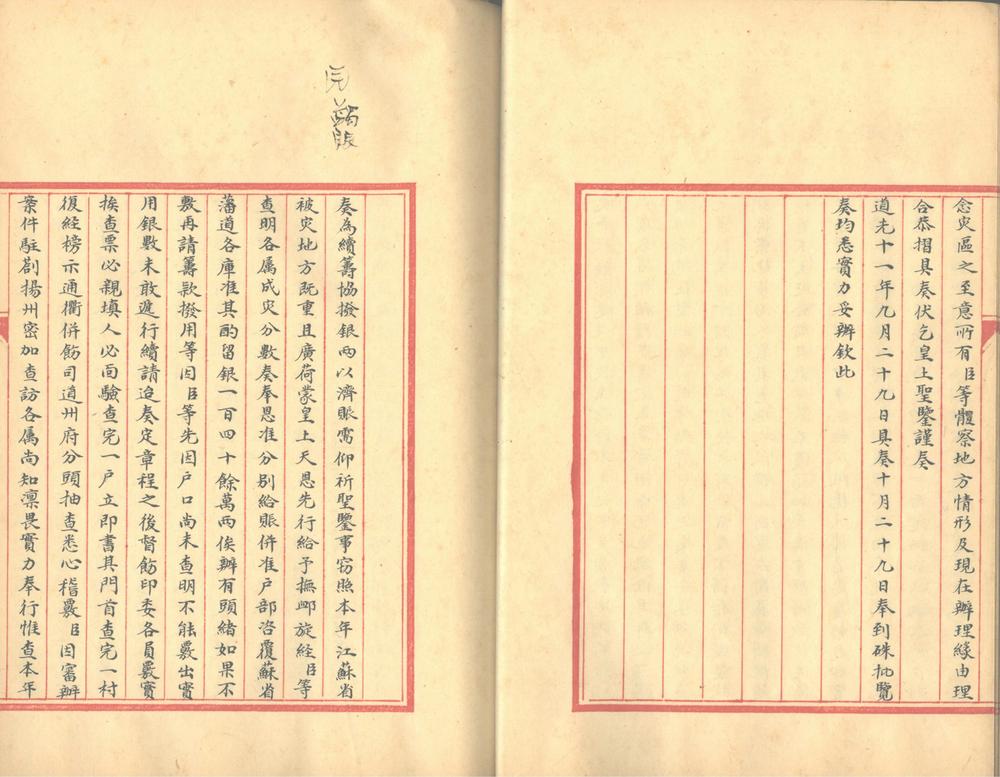 念灾區之至意所有臣等體察地方情形及現在辦理緣由理
合恭摺具奏伏乞皇上聖鑒謹奏
道光十一年九月二十九日具奏十月二十九日奉到硃批覽
奏均悉實力妥辦欽此
奏為續籌協撥銀兩以濟賑需仰祈聖鑒事窃照本年江蘇省
被灾地方既重且廣荷蒙皇上天恩先行給予撫卹旋經臣等
查明各属成灾分數奏奉恩准分别給賑併准户部咨覆蘇省
藩道各庫准其酌留銀一百四十餘萬兩俟辦有頭緒如果不
敷再請籌款撥用等因臣等先因户口尚未查明不能覈出實
用銀數未敢遽行續請迨奏定章程之後督飭印委各員覈實
挨查票必親填人必面驗查完一户立即書其門首查完一村
復經榜示通衢併飭司道州府分頭抽查悉心稽覈臣因審辦
案件駐劄揚州密加查訪各属尚知凛畏實力奉行惟查本年